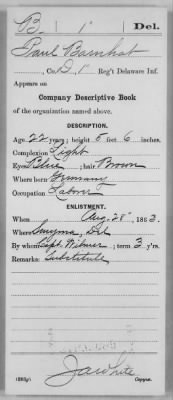 B. | 1 | Del.
Paul Barnhat
, Co. D, 1 Reg't Delaware Inf.
Appears on
Company Descriptive Book
of the organization named above.
DESCRIPTION.
Age 22 years; height 5 feet 6 inches.
Complexion Light
Eyes Blue; hair Brown
Where born Germany
Occupation Laborer
ENLISTMENT.
When Aug. 28, 1863.
Where Smyrna, Del
By whom Capt. Wilmer; term 3 y'rs.
Remarks: Substitute
J A White
Copyist.